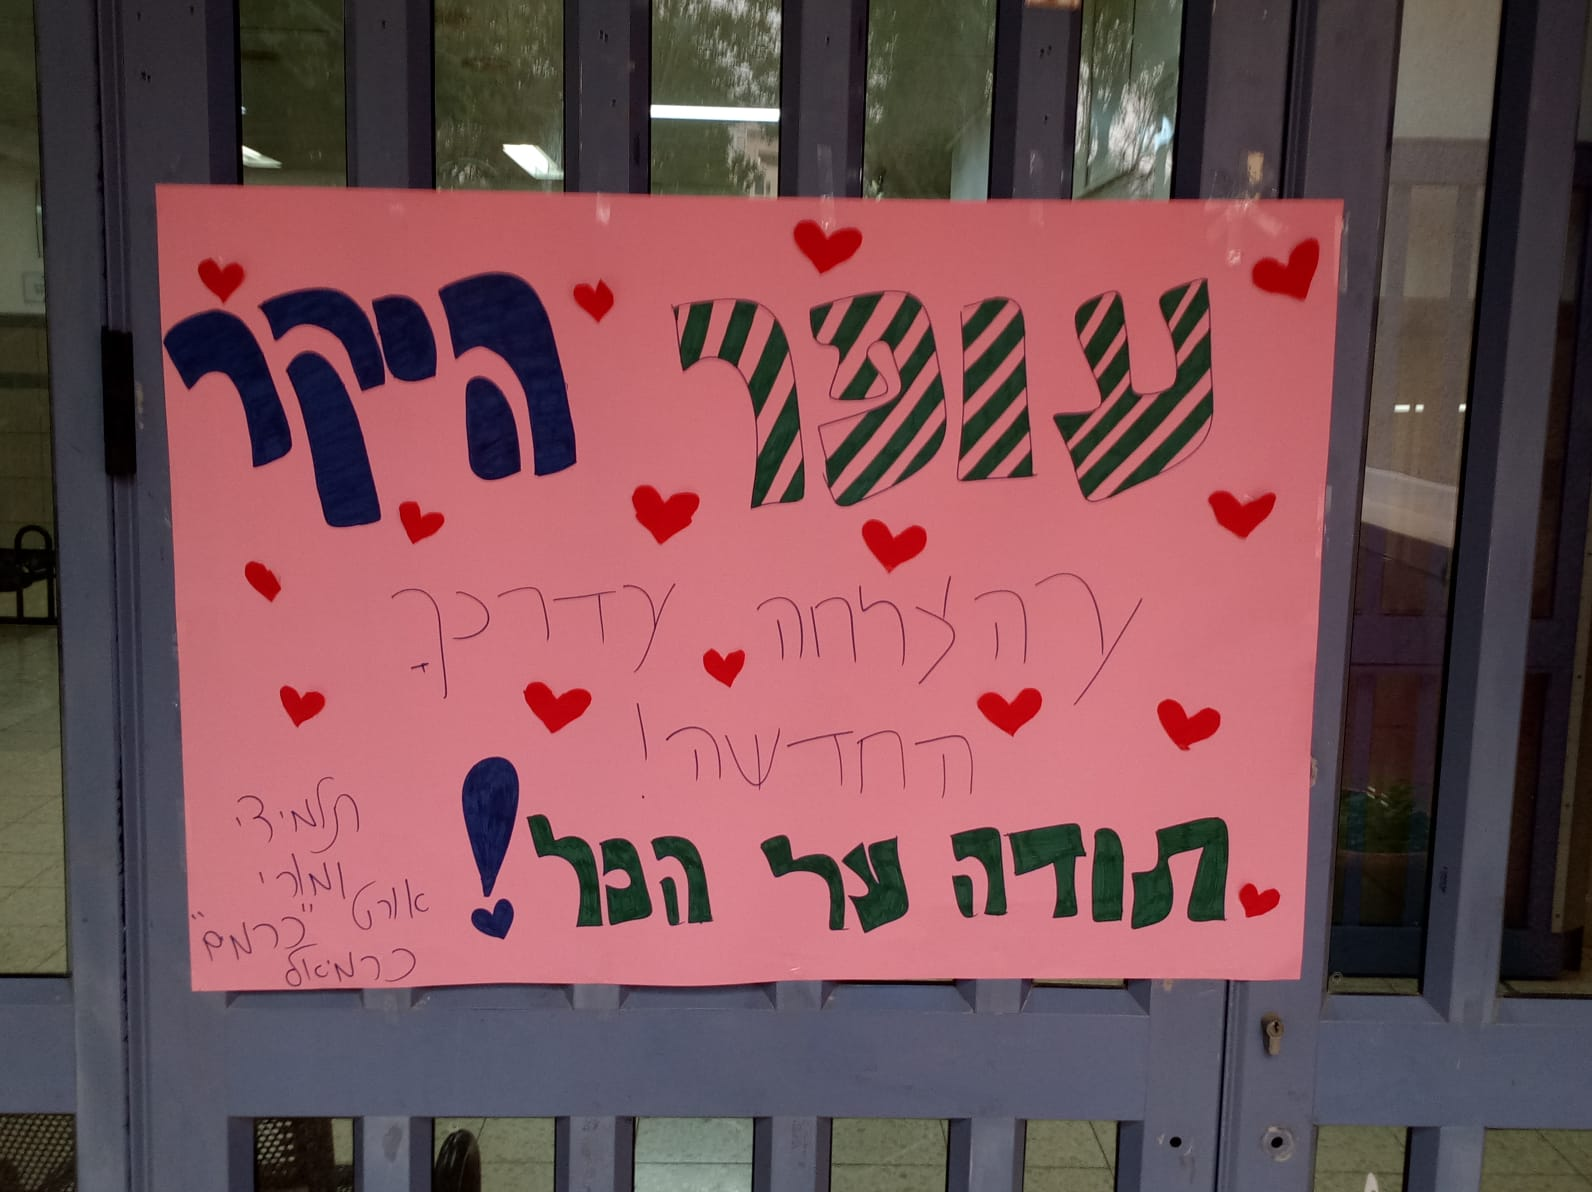 עופר היקר
בהצלחה בדרכך
החדשה!
תודה על הכל!
תלמידי
ומורי
אורט "כרמים"
כרמיאל